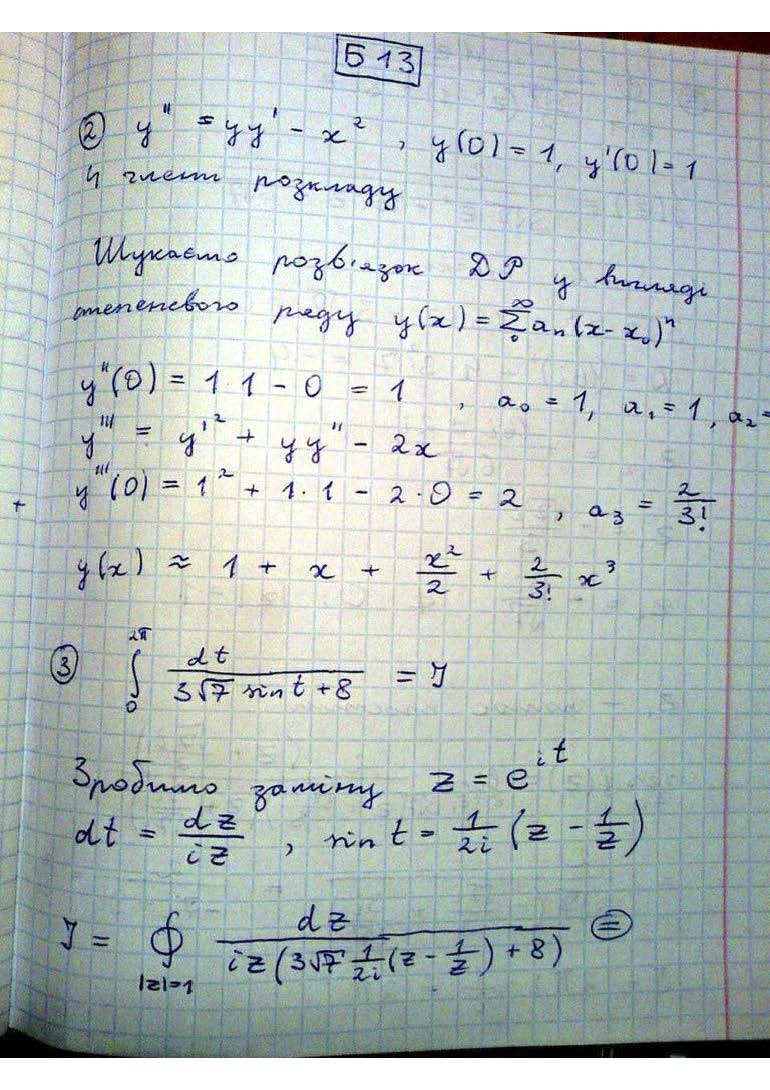 Б 13
② y'' = yy' - x², y(0) = 1, y'(0) = 1
4 члени розкладу
Шукаємо розв'язок ДР у вигляді
степеневого ряду y(x) = ∑₀^∞ aₙ(x - x₀)ⁿ
y''(0) = 1·1 - 0 = 1, a₀ = 1, a₁ = 1, a₂ =
y''' = y'² + yy'' - 2x
y'''(0) = 1² + 1·1 - 2·0 = 2, a₃ = 2/3!
+
y(x) ≈ 1 + x + x²/2 + 2/3! x³
③ ∫₀^2π dt/(3√7 sin t + 8) = I
Зробимо заміну z = e^it
dt = dz/iz, sin t = 1/2i (z - 1/z)
I = ∮_|z|=1 dz/(iz(3√7 1/2i (z - 1/z) + 8)) ⊜